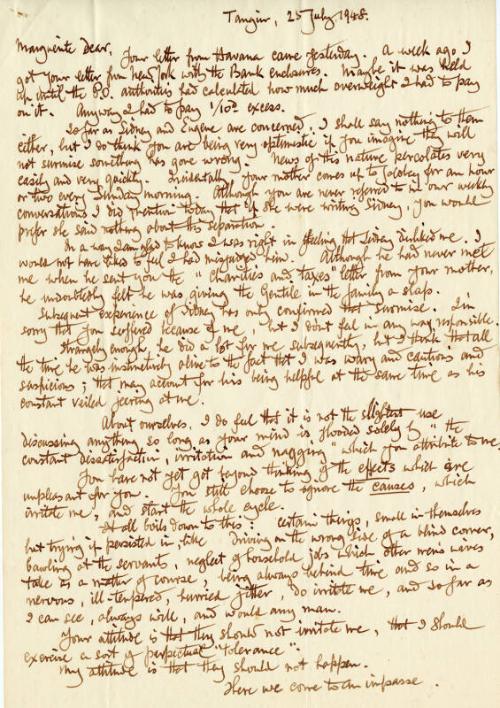 Tangier, 25 July 1948.
Marguerite Dear,
Your letter from Havana came yesterday. A week ago I
got your letter from New York with the Bank enclosures. Maybe it was held
up until the P.O. authorities had calculated how much overweight I had to pay
on it. Anyway I had to pay 1/10d excess.
So far as Sidney and Eugene are concerned, I shall say nothing to them
either, but I do think you are being very optimistic if you imagine they will
not surmise something has gone wrong. News of this nature percolates very
easily and very quickly. Incidentally your mother comes up to for an hour
or two every Sunday morning. Although you are never referred to in our weekly
conversations I did mention today that if she were writing Sidney, you would
prefer she said nothing about this separation.
In a way I am glad to know I was right in feeling that Sidney disliked me. I
would not have liked to feel I had misjudged him. Although he had never met
me when he sent you the "Charities and taxes" letter from your mother,
he undoubtedly felt he was giving the Gentile in the family a slap.
Subsequent experience of Sidney has only confirmed that surmise. I'm
sorry that you suffered because of me, but I don't feel in any way responsible.
Strangely enough he did a lot for me subsequently, but I think that all
the time he was instinctively alive to the fact that I was wary and cautious and
suspicious; that may account for his being helpful at the same time as his
constant veiled jeering at me.
About ourselves. I do feel that it is not the slightest use
discussing anything so long as your mind is flooded solely by "the
constant dissatisfaction, irritation and nagging" which you attribute to me.
You have not yet got beyond thinking of the effects which are
unpleasant for you. You still choose to ignore the causes, which
irritate me, and start the whole cycle.
It all boils down to this: certain things, small in themselves
but trying if persisted in, like driving on the wrong side of a blind corner,
bawling at the servants, neglect of household jobs which other men's wives
take as a matter of course, being always behind time and so in a
nervous, ill-tempered, hurried jitter, do irritate me, and so far as
I can see, always will, and would any man.
Your attitude is that they should not irritate me, that I should
exercise a sort of perpetual "tolerance".
My attitude is that they should not happen.
Here we come to an impasse.